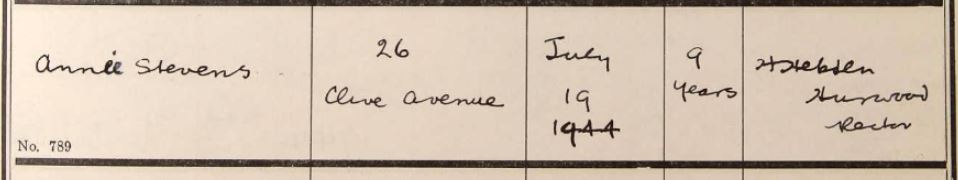 Annie Stevens
No. 789
26
Clive Avenue
July
19
1944
9
years
H Hebden
Hurwood
Rector